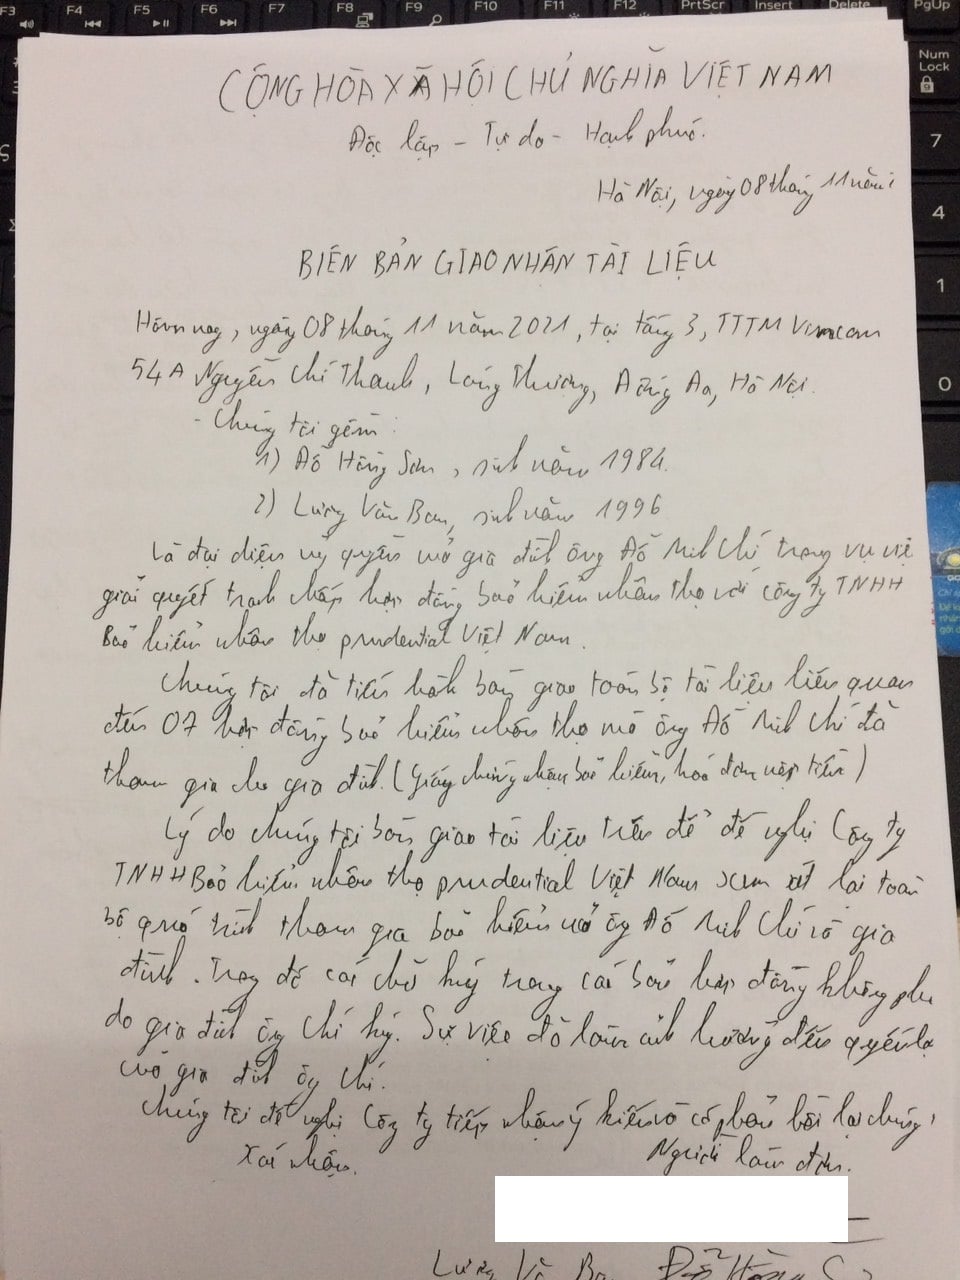 F3 F4 F5 F6 F7 F8 F9 F10 F11 F12 PrtScr Insert Delete PgUp
Num
Lock
7
4
1
0
CỘNG HÒA XÃ HỘI CHỦ NGHĨA VIỆT NAM
Độc lập - Tự do - Hạnh phúc.
Hà Nội, ngày 08 tháng 11 năm
BIÊN BẢN GIAO NHẬN TÀI LIỆU
Hôm nay, ngày 08 tháng 11 năm 2021, tại tầng 3, TTTM Vincom
54A Nguyễn Chí Thanh, Láng Thượng, Đống Đa, Hà Nội.
- Chúng tôi gồm:
1) Đỗ Hồng Sơn, sinh năm 1984.
2) Lương Văn Ban, sinh năm 1996
Là đại diện uỷ quyền của gia đình ông Đỗ Minh Chí trong vụ việc
giải quyết tranh chấp hợp đồng bảo hiểm nhân thọ với công ty TNHH
Bảo hiểm nhân thọ prudential Việt Nam.
Chúng tôi đã tiến hành bàn giao toàn bộ tài liệu liên quan
đến 07 hợp đồng bảo hiểm nhân thọ mà ông Đỗ Minh Chí đã
tham gia cho gia đình. (Giấy chứng nhận bảo hiểm, hoá đơn nộp tiền)
Lý do chúng tôi bàn giao tài liệu trên để đề nghị Công ty
TNHH Bảo hiểm nhân thọ prudential Việt Nam xem xét lại toàn
bộ quá trình tham gia bảo hiểm của ông Đỗ Minh Chí và gia
đình. Trong đó các chữ ký trong các bảo hợp đồng không phải
do gia đình ông Chí ký. Sự việc đã làm ảnh hưởng đến quyền lợi
của gia đình ông Chí.
Chúng tôi đề nghị Công ty tiếp nhận ý kiến và có phản hồi lại chúng
Xác nhận. Người làm đơn.
Lương Văn Ban Đỗ Hồng